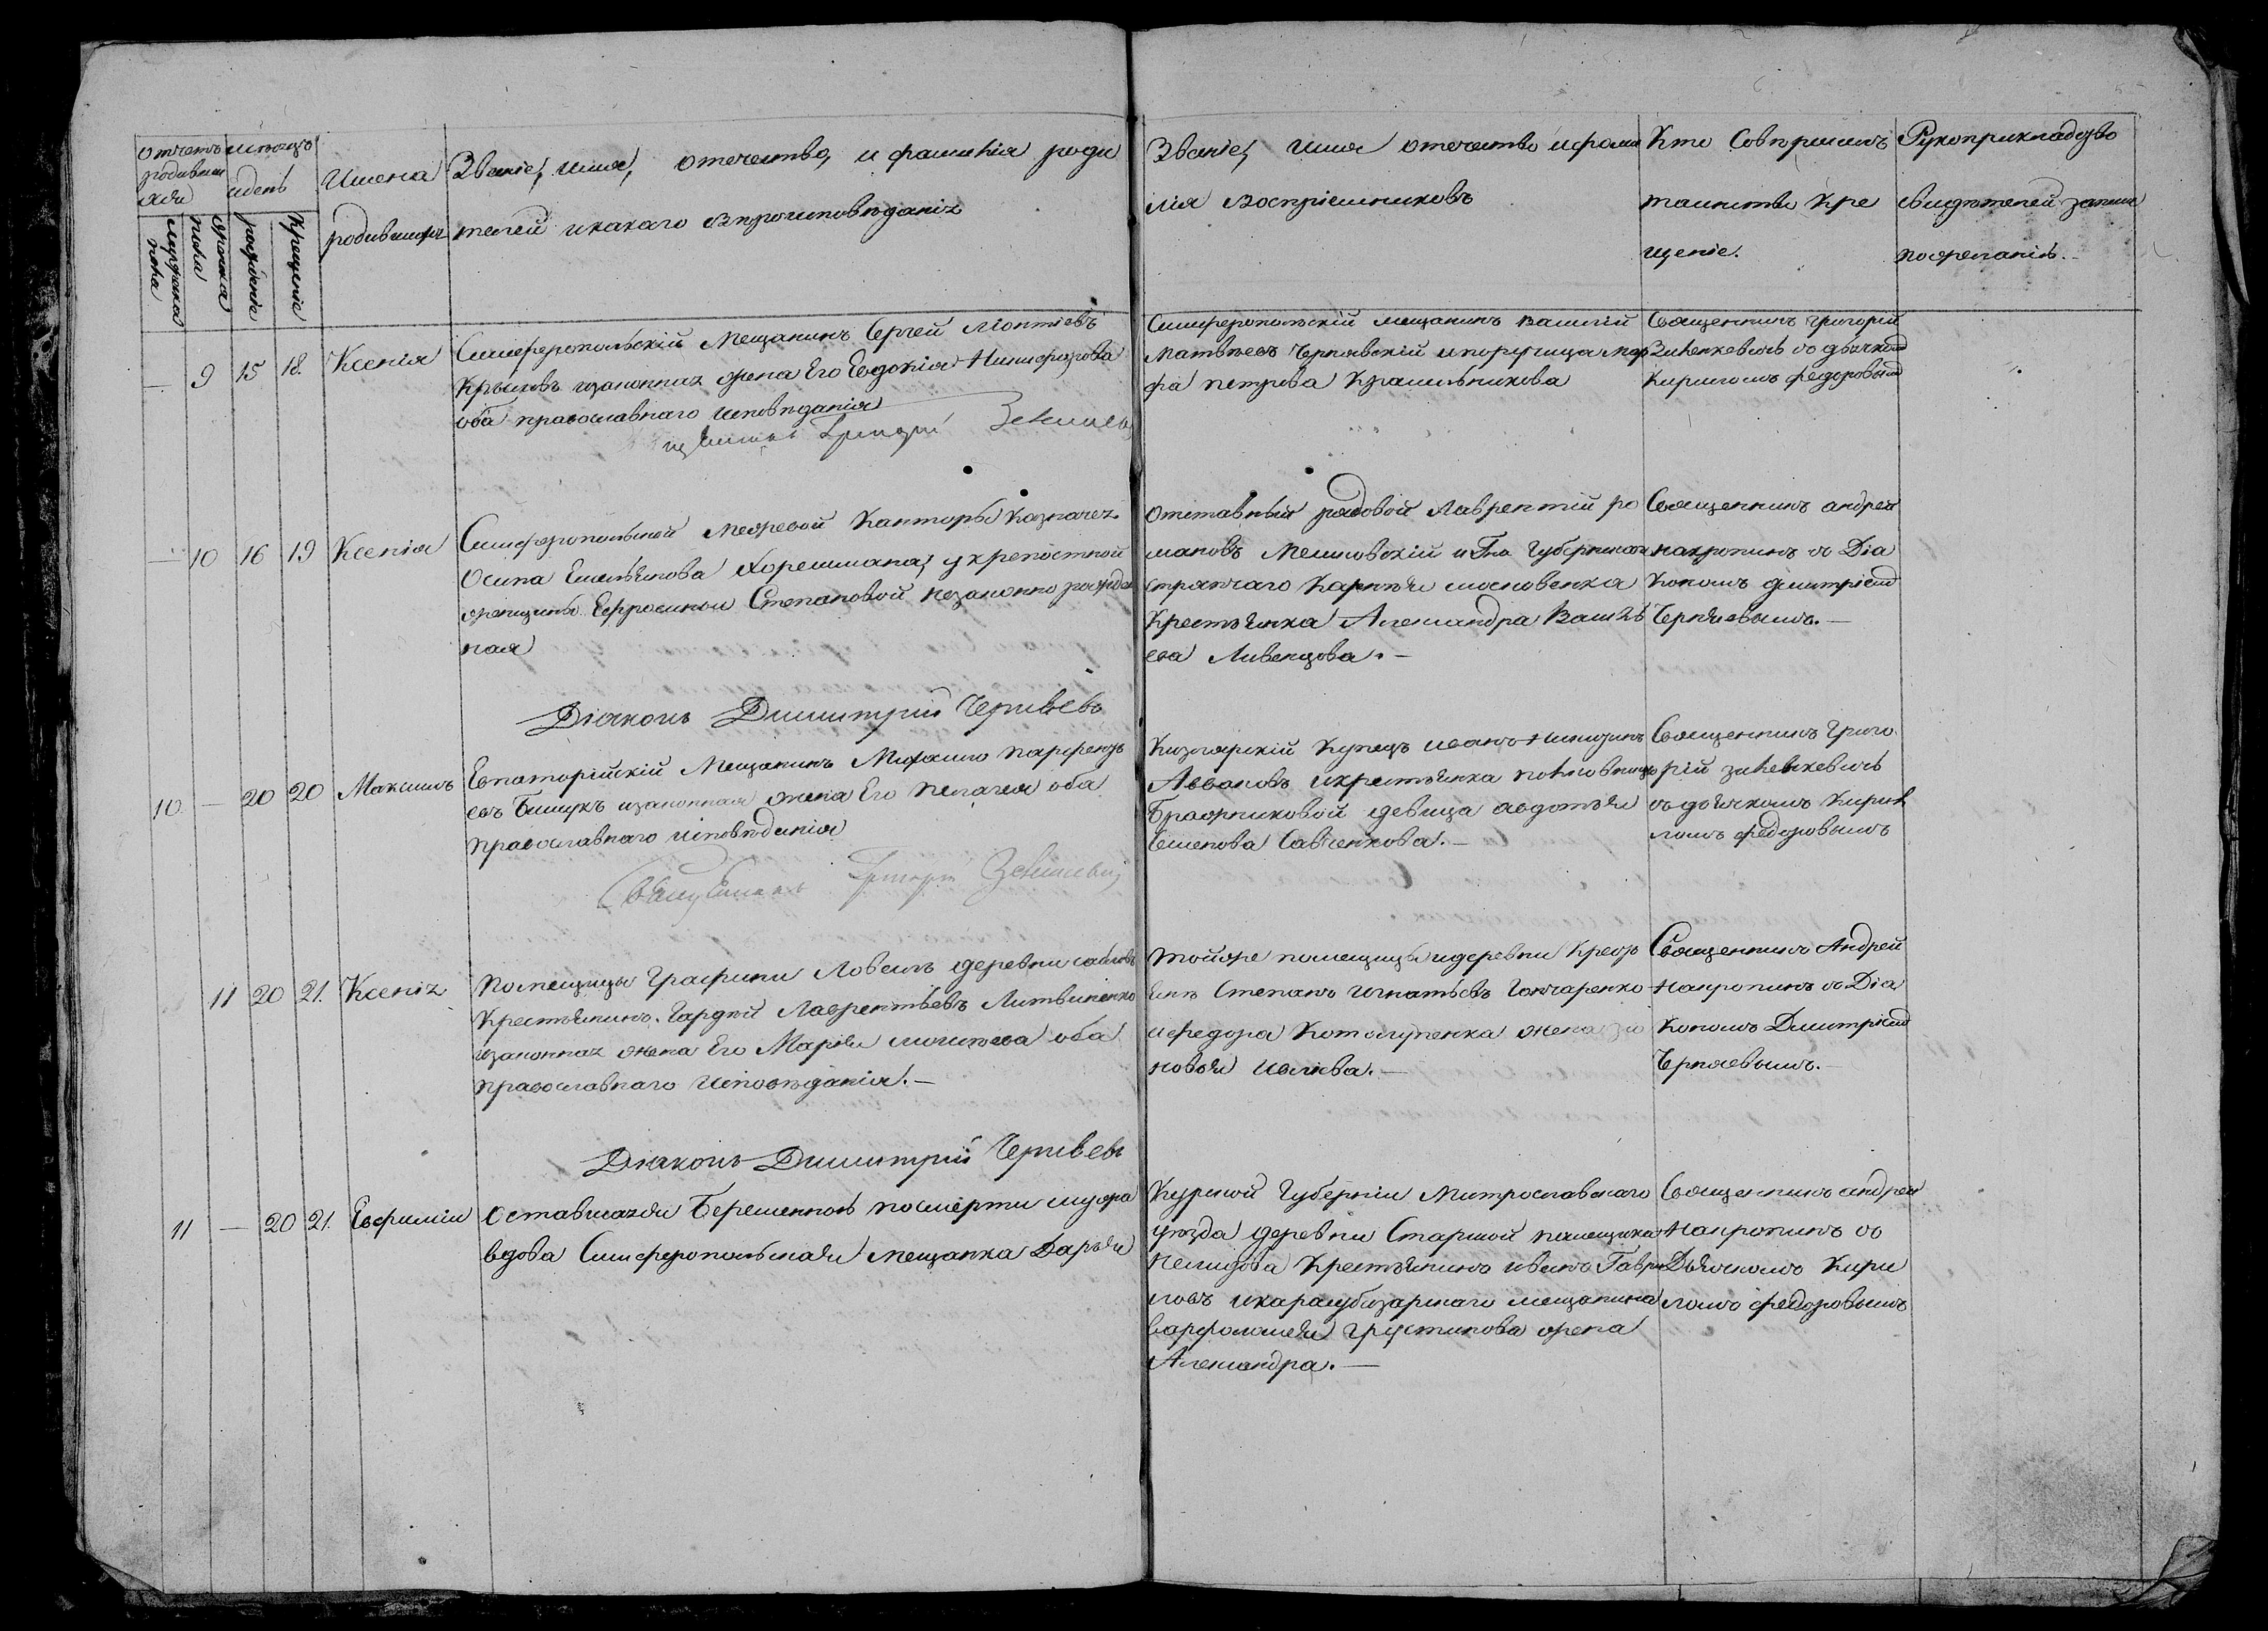 Счетъ
родивших
ся
мѣсяцъ
и день
мужеска
пола
женска
пола
рожденіе
крещеніе
Имена
родившихъ
Званіе, имя, отечество, и фамилія роди
телей и какаго вѣроисповѣданія
Званіе, имя отечество и фами
лія воспріемниковъ
Кто Совершалъ
таинство Кре
щеніе.
Рукоприкладство
свидѣтелей записи
по желанію.
— 9 15 18. Ксенія
Симферопольскій Мещанинъ Сергей Ліонтіевъ
Крыловъ изаконная жена Его Евдокія Никифорова
оба православнаго исповѣданія
Григорій
Симферопольскій мещанинъ Василій
Матвѣевъ Чернявскій и поручица Мар
фа Петрова Красильникова
Священникъ Григорій
Зинкевичь со дьячкомъ
Кириломъ Федоровымъ
— 10 16 19 Ксенія
Симферопольской Межевой Канторы Казначея
Осипа Емельянова Хорешмана, у крепостной
женщины Ефросиньи Степановой незаконно рожден
ная
Діаконъ Димитрій Чернѣевъ
Отставный рядовой Лаврентій Ро
мановъ Мешковскій и Гна Губернскаго
стряпчаго Карнѣя московенка
Крестьянка Александра Василь
ева Ливенцова. —
Священникъ Андрей
Накропинъ со Діа
кономъ Дмитріемъ
Черняевымъ. —
10 — 20 20 Максимъ
Евпаторійскій Мещанинъ Михаило Парфентъ
евъ Бищукъ изаконная жена Его Пелагея оба
православнаго исповѣданія
Священникъ Григорій
Кизлярскій Купецъ Иванъ Никитинъ
Авваковъ и крестьянка полковницы
Бражниковой девица Авдотья
Семенова Савченкова. —
Священникъ Григо
рій Зинькевичь
со дьячкомъ Кирил
ломъ Федоровымъ
11 20 21. Ксенія
Помещицы Графини Ловель деревни Саблов
Крестьянинъ Гордей Лаврентьевъ Литвиненко
изаконная жена Его Марія оба
православнаго исповѣданія. —
Діаконъ Димитрій Чернѣевъ
Той же помещицы и деревни Кресть
янъ Степанъ Игнатьевъ Гончаренко
и Федора Котолупенка жена
новья —
Священникъ Андрей
Накропинъ со Діа
кономъ Дмитріемъ
Черняевымъ. —
11 — 20 21. Евфимій
Оставшаяся Беременною по смерти мужа
вдова Симферопольская мещанка Дарья
Курской Губерніи Митрославскаго
уезда деревни Старшой помещика
Немидова Крестьянинъ Иванъ Гаври
ловъ и карасубазарскаго мещанина
Варфоломея Грустинова жена
Александра. —
Священникъ Андрей
Накропинъ со
Дьячкомъ Кири
ломъ Федоровымъ